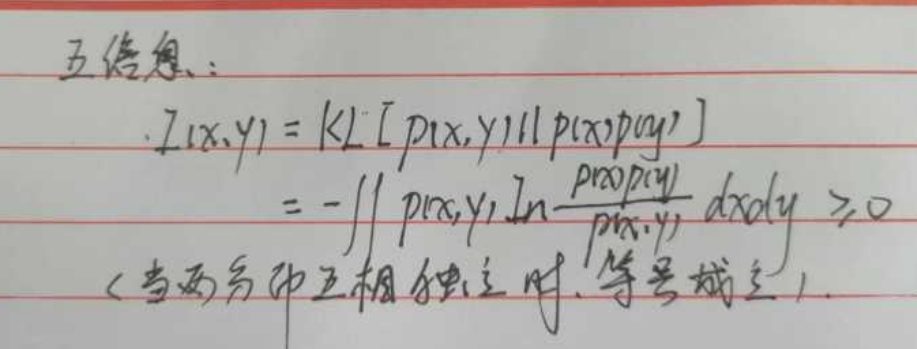 互信息:
I(x,y) = KL[p(x,y)||p(x)p(y)]
= -∬ p(x,y) ln p(x)p(y)/p(x,y) dxdy ≥0
(当两分布互相独立时,等号成立).